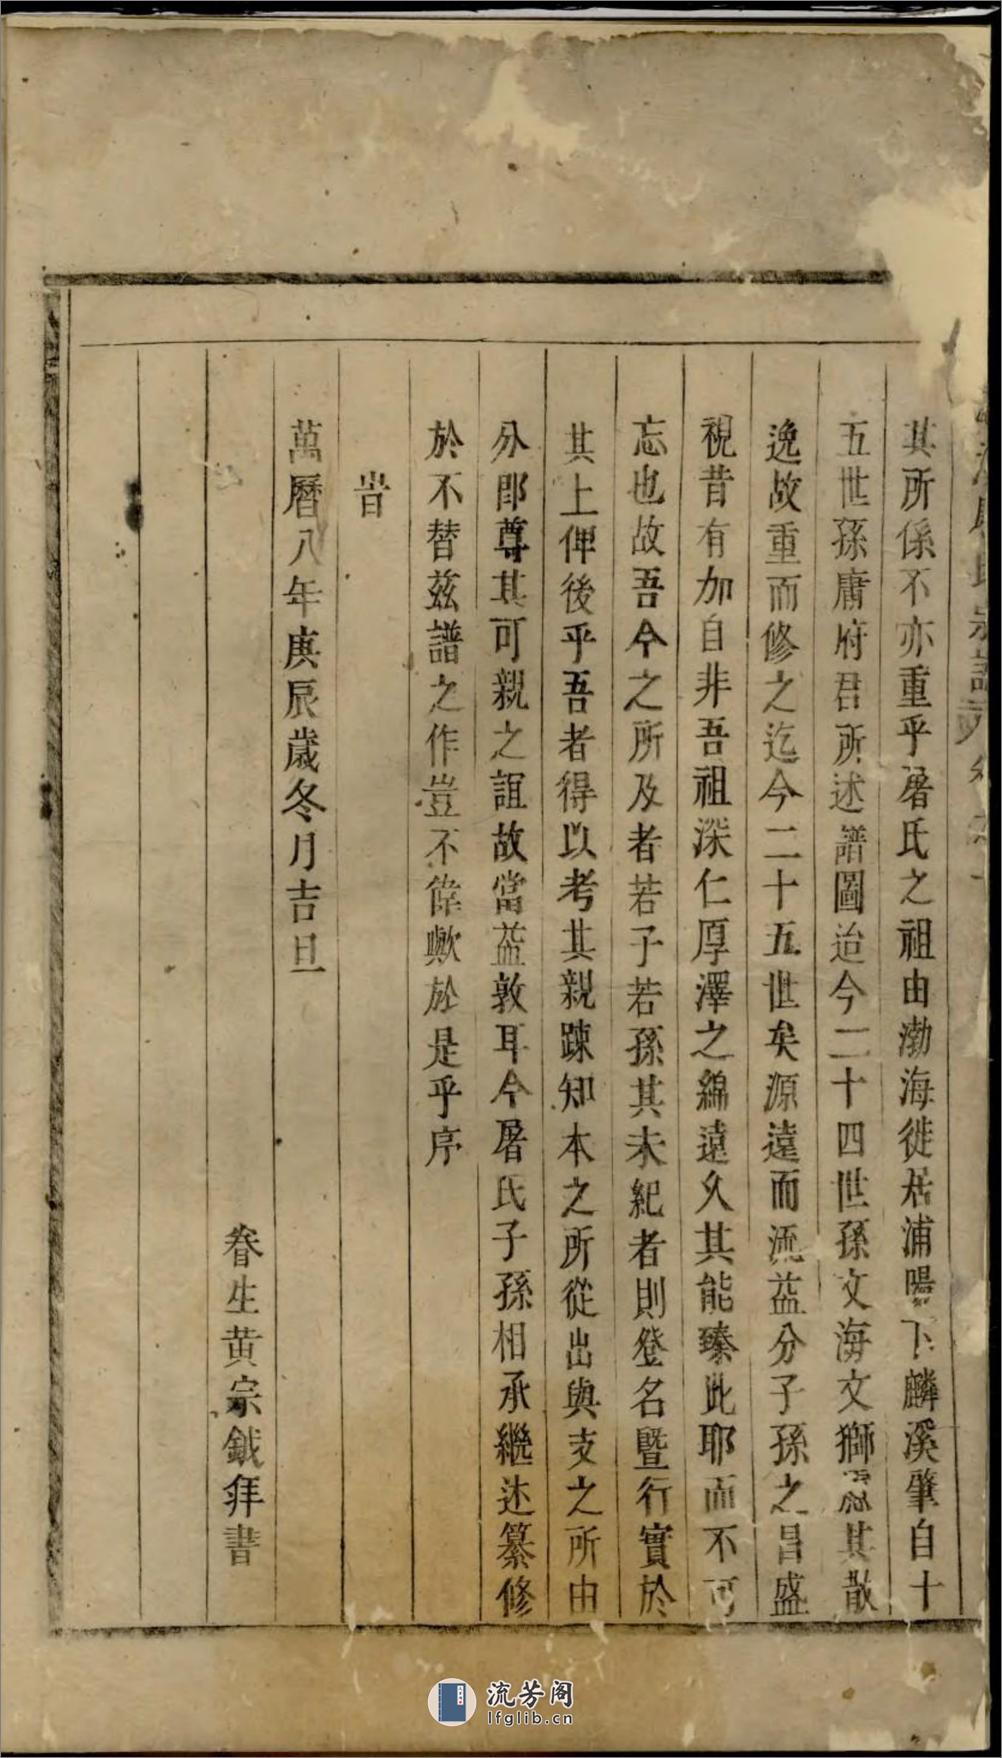 其所係不亦重乎屠氏之祖由渤海徙居浦陽下麟溪肇自十
五世孫庸府君所述譜圖迨今二十四世孫文海文獅慮其散
逸故重而修之迄今二十五世矣源遠而流益分子孫之昌盛
視昔有加自非吾祖深仁厚澤之綿遠久其能臻此耶而不可
忘也故吾今之所及者若子若孫其未紀者則登名暨行實於
其上俾後乎吾者得以考其親踈知本之所從出與支之所由
分郎尊其可親之誼故當益敦耳今屠氏子孫相承繼述纂修
於不替兹譜之作豈不偉歟於是乎序
旹
萬曆八年庚辰歲冬月吉旦
眷生黄宗鉞拜書
流芳阁
lfglib.cn